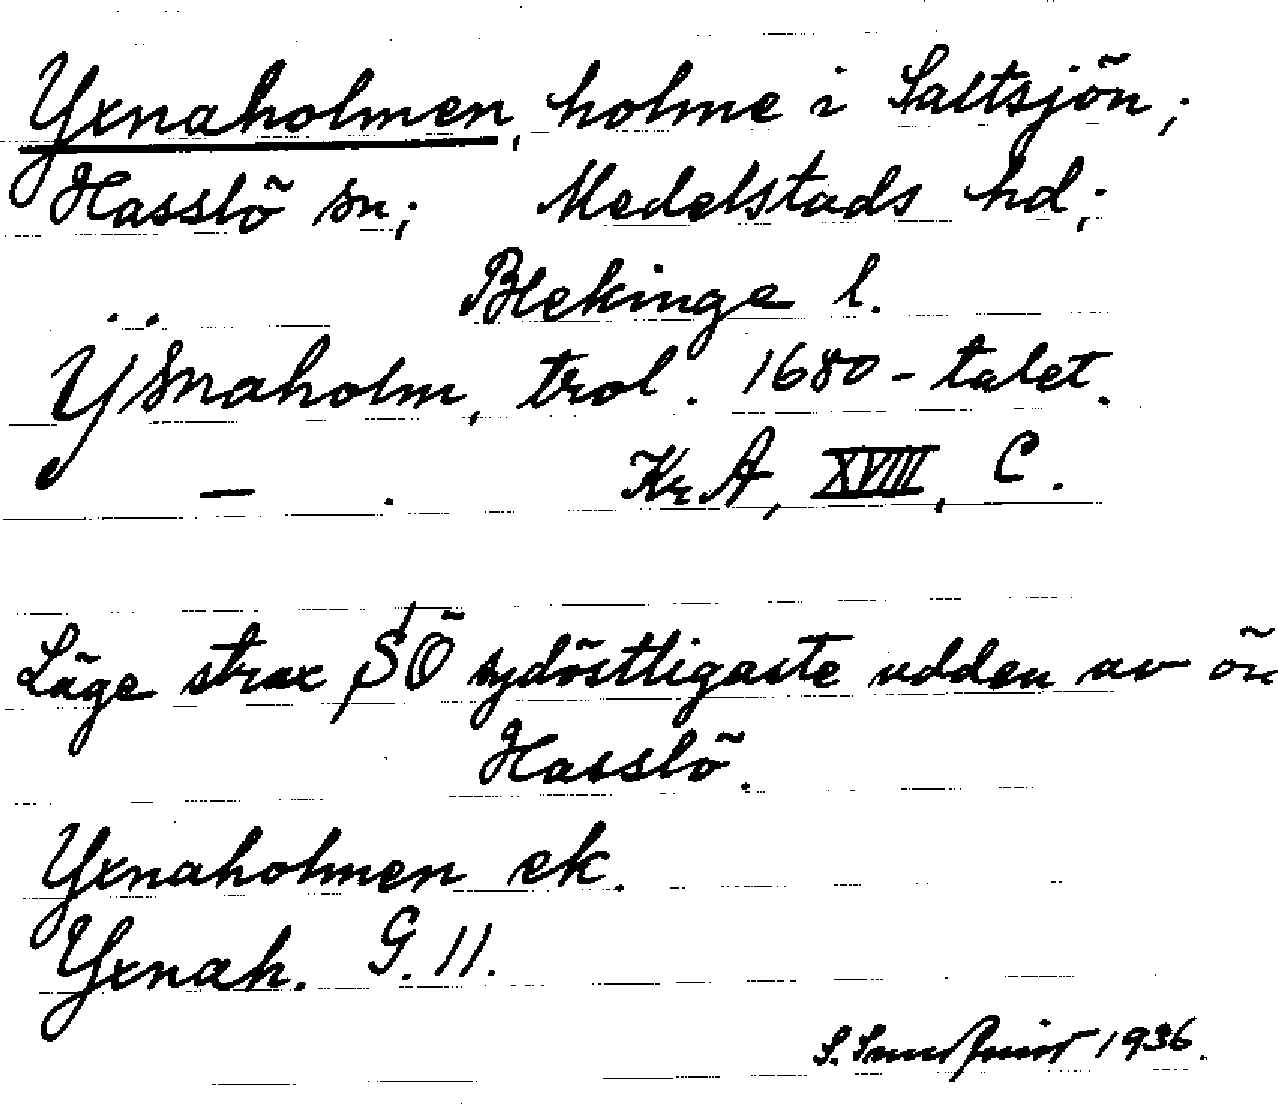 Yxnaholmen, holme i Saltsjön;
Hasslö sn; Medelstads hd;
Blekinge l.
Ÿsnaholm, trol. 1680-talet.
— . KrA, XVIII, C.
Läge strax SÖ sydöstligaste udden av ön
Hasslö.
Yxnaholmen ek.
Yxnah. G. 11.
S. 1936.